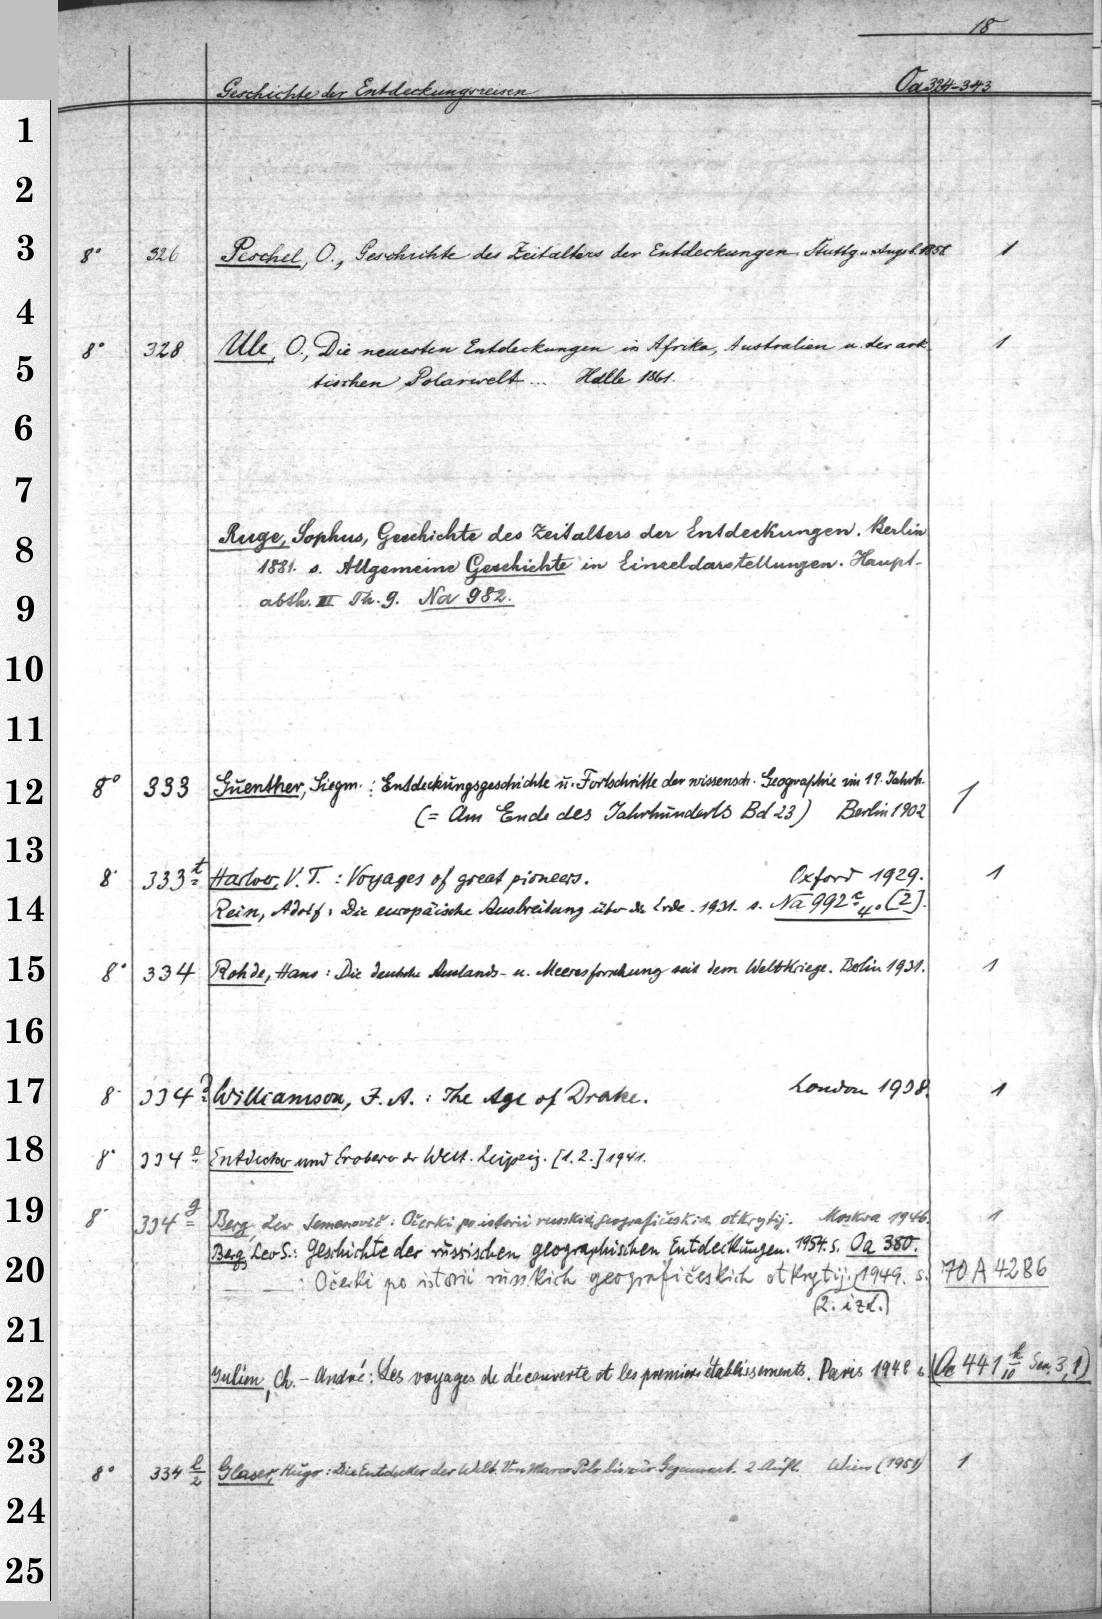 18
Geschichte der Entdeckungsreisen Oa 324-343
1
2
3 8° 326 Peschel, O., Geschichte des Zeitalters der Entdeckungen. Stuttg. u. Augsb. 1858 1
4
8° 328 Ule, O., Die neuesten Entdeckungen in Afrika, Australien u. der ark- 1
5 tischen Polarwelt ... Halle 1861.
6
7
Ruge, Sophus, Geschichte des Zeitalters der Entdeckungen. Berlin
8 1881. s. Allgemeine Geschichte in Einzeldarstellungen. Haupt-
9 abth. III Th. 9. Na 982.
10
11
12 8° 333 Guenther, Siegm.: Entdeckungsgeschichte u. Fortschritte der wissensch. Geographie im 19. Jahrh. 1
(= Am Ende des Jahrhunderts Bd 23) Berlin 1902
13
8° 333 t Harlow, V. T.: Voyages of great pioneers. Oxford 1929. 1
14 Rein, Adolf: Die europäische Ausbreitung über die Erde. 1931. s. Na 992 c 4° [2].
15 8° 334 Rohde, Hans: Die deutsche Auslands- u. Meeresforschung seit dem Weltkriege. Berlin 1931. 1
16
17 8° 334 Williamson, J. A.: The Age of Drake. London 1938. 1
18 8° 334 e Entdecker und Eroberer der Welt. Leipzig. [1. 2.] 1941.
19 8° 334 g Berg, Lev Semenovič: Očerki po istorii russkich geografičeskich otkrytij. Moskva 1946. 1
Berg, Leo S.: Geschichte der russischen geographischen Entdeckungen. 1954. s. Oa 380.
20 : Očerki po istorii russkich geografičeskich otkrytij. 1949. s. 70 A 4286
(2. izd.)
21
22 Julien, Ch.-André: Les voyages de découverte et les premiers établissements. Paris 1948 s. (Oa 441 k/10 Ser. 3,1)
23
8° 334 l/2 Glaser, Hugo: Die Entdecker der Welt. Von Marco Polo bis zur Gegenwart. 2. Aufl. Wien (1951) 1
24
25